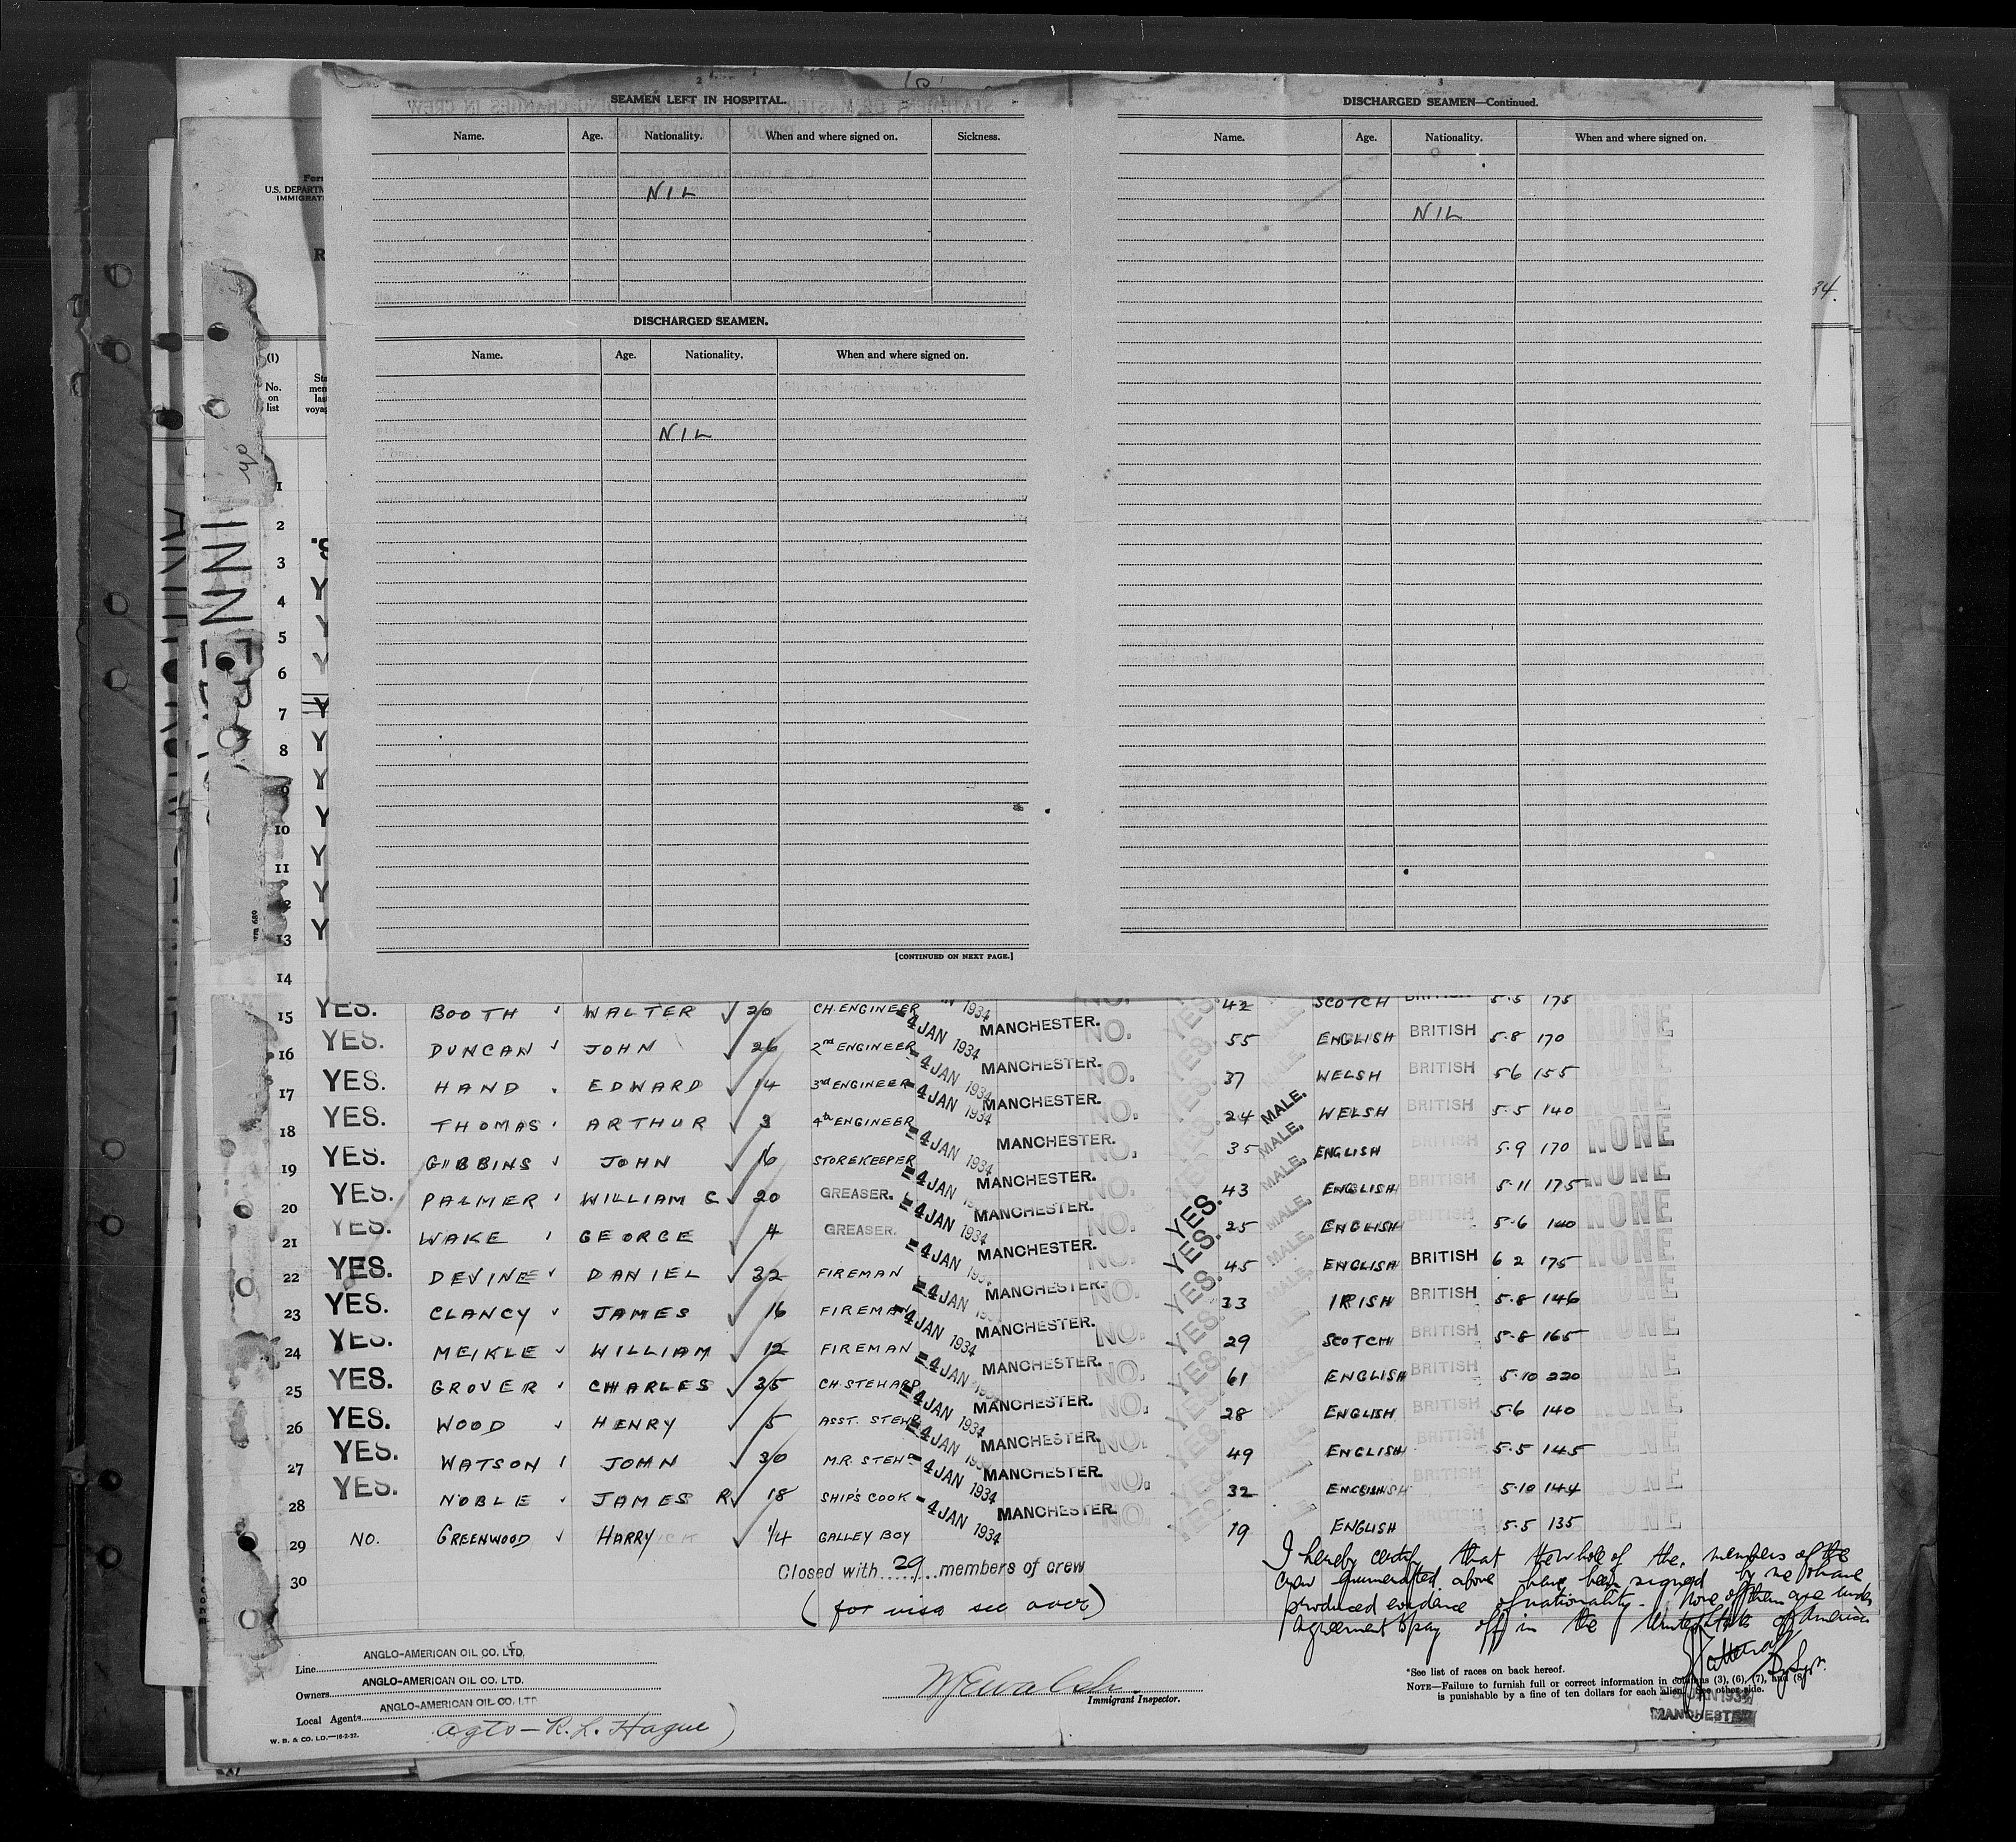 SEAMEN LEFT IN HOSPITAL.
Name. Age. Nationality. When and where signed on. Sickness.
NIL
DISCHARGED SEAMEN.
Name. Age. Nationality. When and where signed on.
NIL
[CONTINUED ON NEXT PAGE.]
3
DISCHARGED SEAMEN—Continued.
Name. Age. Nationality. When and where signed on.
NIL
34.
U.S. DEPARTM
IMMIGRATI
(1)
No. on list
1
2
3
4
5
6
7
8
9
10
11
12
13
14
15 YES. BOOTH WALTER 20 CH. ENGINEER 4 JAN 1934 MANCHESTER. NO. YES. 42 MALE SCOTCH BRITISH 5.5 175 NONE
16 YES. DUNCAN JOHN 26 2nd ENGINEER 4 JAN 1934 MANCHESTER. NO. YES. 55 MALE ENGLISH BRITISH 5.8 170 NONE
17 YES. HAND EDWARD 14 3rd ENGINEER 4 JAN 1934 MANCHESTER. NO. YES. 37 MALE. WELSH BRITISH 5 6 155 NONE
18 YES. THOMAS ARTHUR 3 4th ENGINEER 4 JAN 1934 MANCHESTER. NO. YES. 24 MALE. WELSH BRITISH 5.5 140 NONE
19 YES. GIBBINS JOHN 16 STOREKEEPER 4 JAN 1934 MANCHESTER. NO. YES. 35 MALE. ENGLISH BRITISH 5.9 170 NONE
20 YES. PALMER WILLIAM C 20 GREASER. 4 JAN 1934 MANCHESTER. NO. YES. 43 MALE. ENGLISH BRITISH 5.11 175 NONE
21 YES. WAKE GEORGE 4 GREASER. 4 JAN 1934 MANCHESTER. NO. YES. 25 MALE. ENGLISH BRITISH 5.6 140 NONE
22 YES. DEVINE DANIEL 32 FIREMAN 4 JAN MANCHESTER. NO. YES. 45 MALE. ENGLISH BRITISH 6 2 175 NONE
23 YES. CLANCY JAMES 16 FIREMAN 4 JAN 1934 MANCHESTER. NO. YES. 33 IRISH BRITISH 5.8 146 NONE
24 YES. MEIKLE WILLIAM 12 FIREMAN 4 JAN 1934 MANCHESTER. NO. YES. 29 SCOTCH BRITISH 5.8 165 NONE
25 YES. GROVER CHARLES 35 CH. STEWARD 4 JAN 1934 MANCHESTER. NO. YES. 61 ENGLISH BRITISH 5.10 220 NONE
26 YES. WOOD HENRY 5 ASST. STEWD 4 JAN 1934 MANCHESTER. NO. YES. 28 ENGLISH BRITISH 5.6 140 NONE
27 YES. WATSON JOHN 30 M.R. STEWD 4 JAN 1934 MANCHESTER. NO. YES. 49 ENGLISH BRITISH 5.5 145 NONE
28 YES. NOBLE JAMES R 18 SHIP'S COOK 4 JAN 1934 MANCHESTER. NO. YES. 32 ENGLISH BRITISH 5.10 144 NONE
29 NO. GREENWOOD HARRY 1/4 GALLEY BOY 19 ENGLISH 5.5 135 NONE
30
Closed with 29 members of crew
(for visa see over)
I hereby certify that the whole of the members of the
crew enumerated above have been signed by me & have
produced evidence of nationality. None of them are under
agreement to pay off in the United States of America
Line ANGLO-AMERICAN OIL CO. LTD.
Owners ANGLO-AMERICAN OIL CO. LTD.
Local Agents ANGLO-AMERICAN OIL CO. LTD.
agts - R. L. Hague
W. B. & CO. LD.—16-2-32.
Immigrant Inspector.
*See list of races on back hereof.
NOTE—Failure to furnish full or correct information in columns (3), (6), (7), and (8)
is punishable by a fine of ten dollars for each alien. See other side.
JAN 1934
MANCHESTER